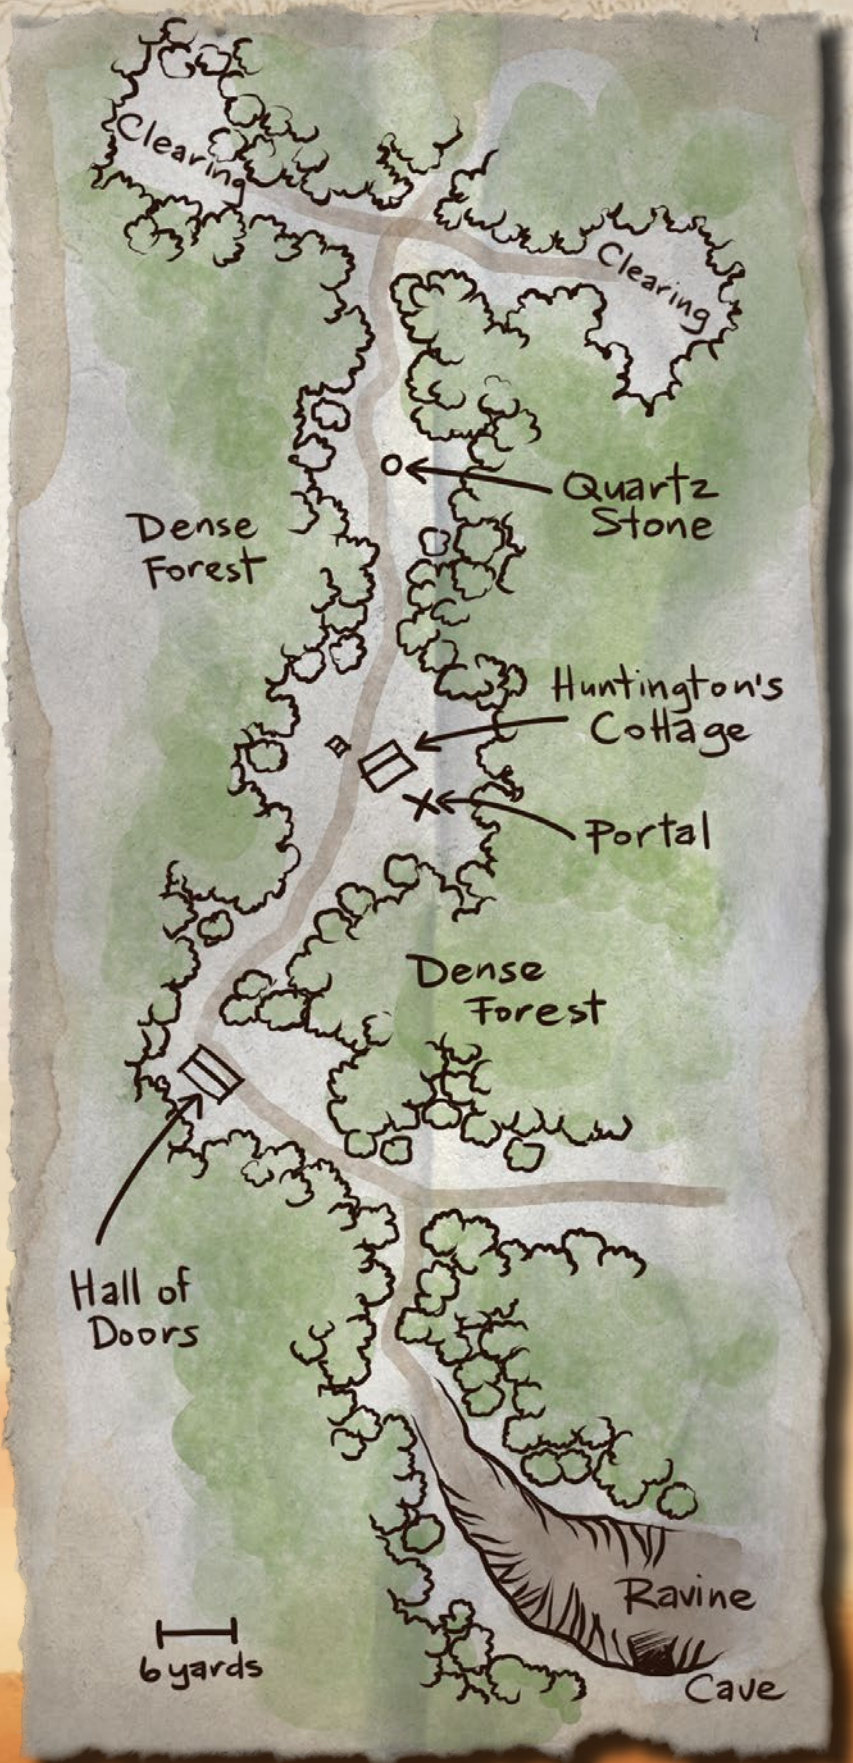 Clearing
Clearing
Quartz
Stone
Dense
Forest
Huntington's
Cottage
Portal
Dense
Forest
Hall of
Doors
Ravine
6 yards
Cave